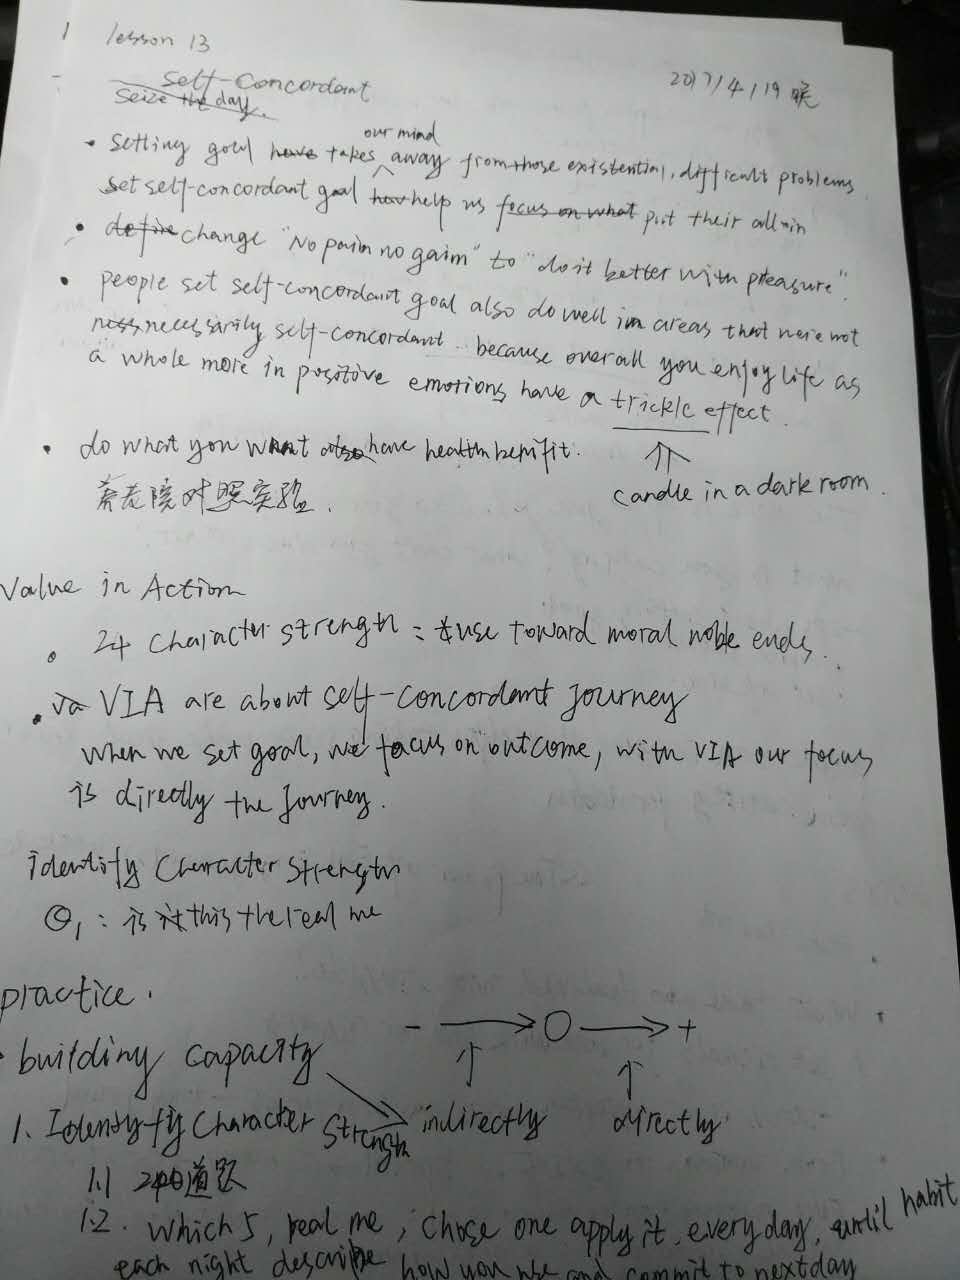 lesson 13
2017/4/19 晚
Self-Concordant
Seize the day.
our mind
• setting goal have takes away from those existential, difficult problems
set self-concordant goal help us focus on what put their all in
• define change "No pain no gaim" to "do it better with pleasure".
• people set self-concordant goal also do well in areas that were not
necessarily self-concordant because overall you enjoy life as
a whole more in positive emotions have a trickle effect.
• do what you want also have health benifit.
candle in a dark room.
养老院对照实验.
Value in Action
• 24 Character strength = use toward moral noble ends.
• VIA are about self-concordant Journey
When we set goal, we focus on outcome, with VIA our focus
is directly the Journey.
identify Character Strength
Q1: is it this the real me
practice.
- → O → +
• building capacity
indirectly directly
1. Identyfiy Character Strength
1.1 240道题
1.2. Which 5, real me, chose one apply it, every day, until habit
each night describe how you use and commit to next day